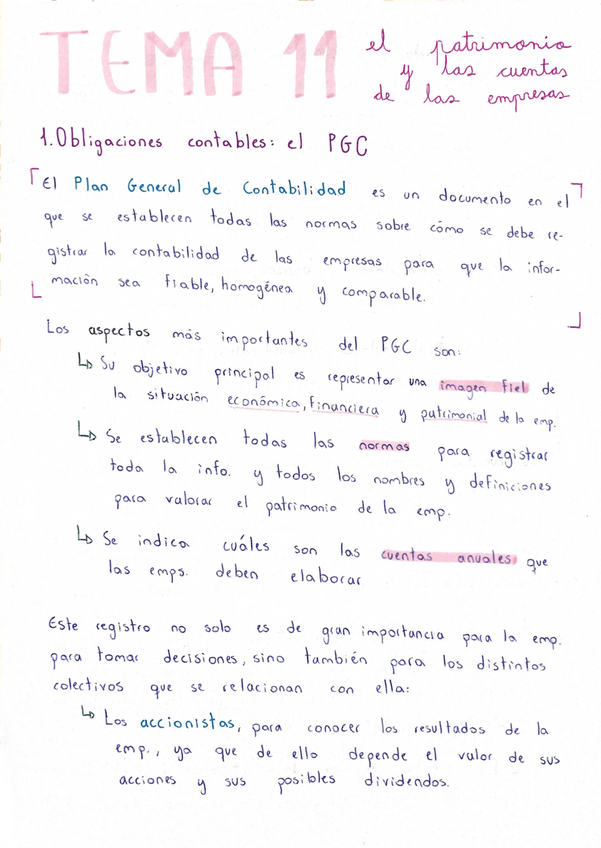 TEMA 11 el patrimonio
y las cuentas
de las empresas
1. Obligaciones contables: el PGC
El Plan General de Contabilidad es un documento en el
que se establecen todas las normas sobre cómo se debe re-
gistrar la contabilidad de las empresas para que la infor-
mación sea fiable, homogénea y comparable.
Los aspectos más importantes del PGC son:
↳ Su objetivo principal es representar una imagen fiel de
la situación económica, financiera y patrimonial de la emp.
↳ Se establecen todas las normas para registrar
toda la info. y todos los nombres y definiciones
para valorar el patrimonio de la emp.
↳ Se indica cuáles son las cuentas anuales que
las emps. deben elaborar
Este registro no solo es de gran importancia para la emp.
para tomar decisiones, sino también para los distintos
colectivos que se relacionan con ella:
↳ Los accionistas, para conocer los resultados de la
emp., ya que de ello depende el valor de sus
acciones y sus posibles dividendos.